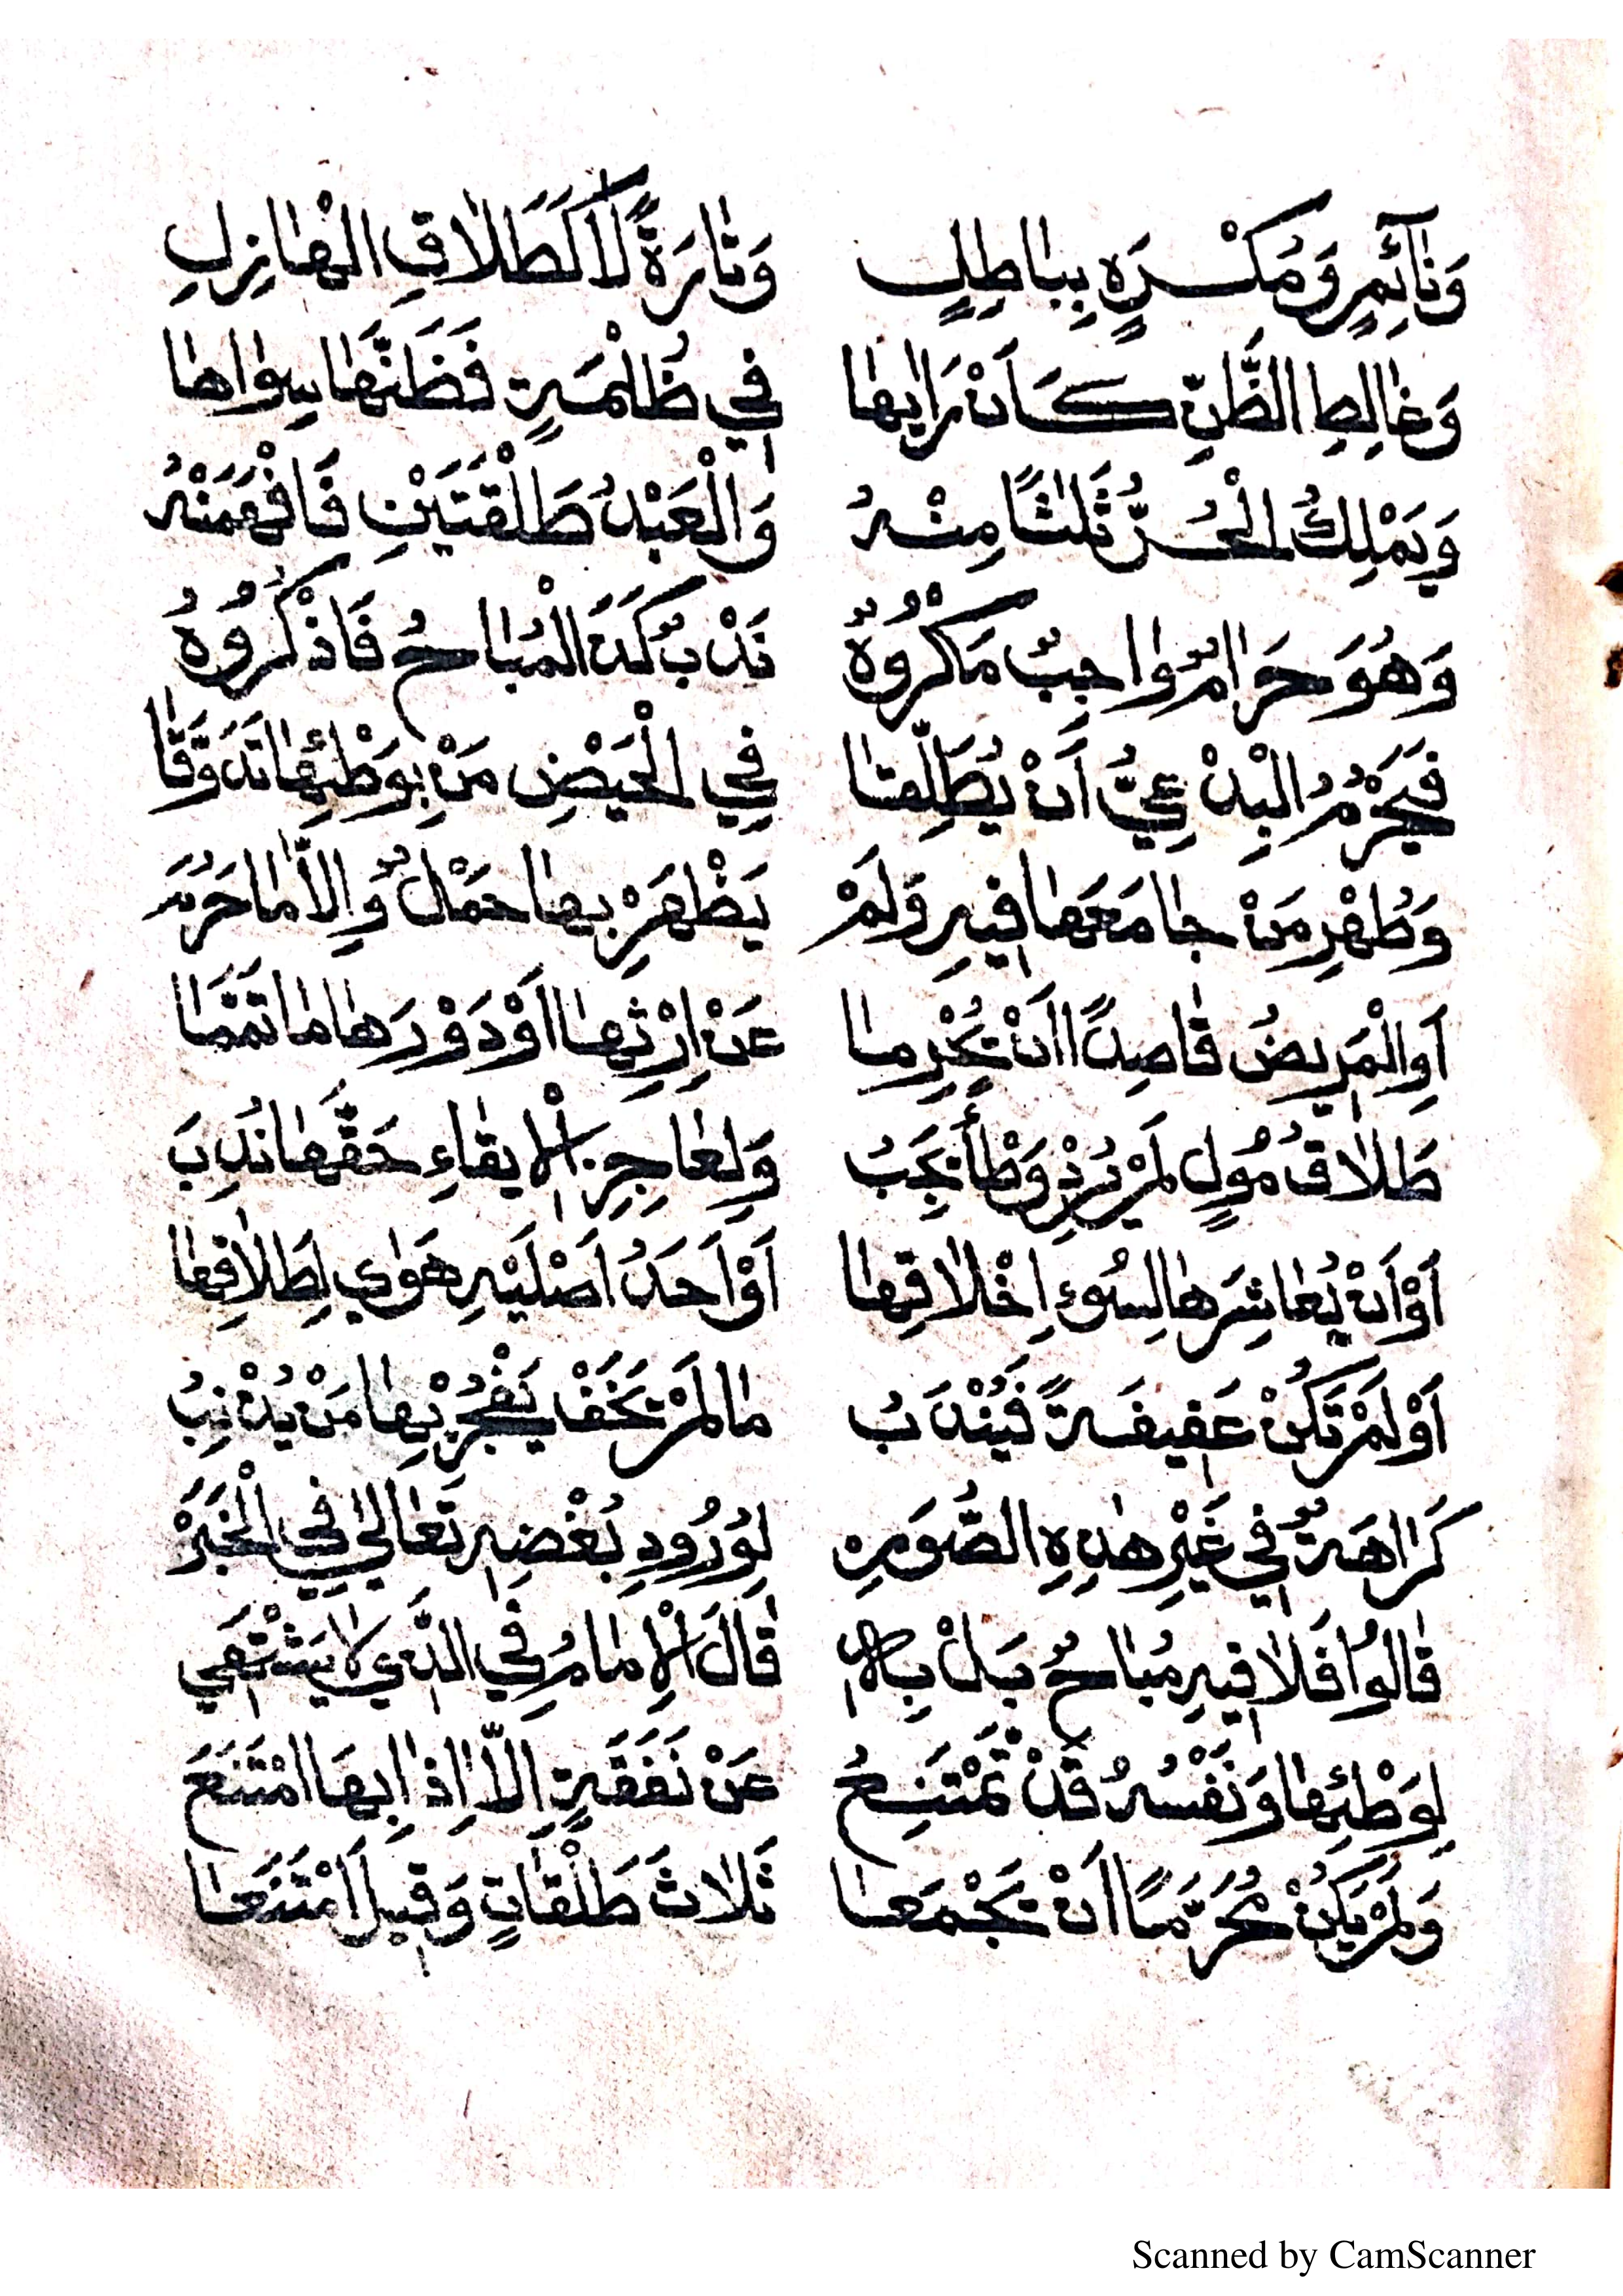 وَنَائِمٍ وَمُكْرَهٍ بِبَاطِلٍ وَتَارَةً لَا كَطَلَاقِ الْهَازِلِ
وَغَالِطِ الظَّنِّ كَأَنْ رَاٰهَا فِي ظُلْمَةٍ فَظَنَّهَا سِوَاهَا
وَيَمْلِكُ الْحُرُّ ثَلٰثًا مِنْهُ وَالْعَبْدُ طَلْقَتَيْنِ فَافْهَمَنْهُ
وَهُوَ حَرَامٌ وَاجِبٌ مَكْرُوهٌ نَدْبٌ كَذَا الْمُبَاحُ فَاذْكُرُوهُ
فَيَحْرُمُ الْبِدْعِيُّ أَنْ يُطَلِّقَا فِي الْحَيْضِ مَنْ بِوَطْئِهَا تَذَوَّقَا
وَطُهْرِ مَنْ جَامَعَهَا فِيهِ وَلَمْ يَظْهَرْ بِهَا حَمْلٌ وَإِلَّا مَا حَرُمَ
أَوِ الْمَرِيضُ قَاصِدًا أَنْ تُحْرَمَا عَنْ إِرْثِهَا أَوْ دَوْرَهَا مَا تَمَّمَا
طَلَاقُ مُولٍ لَمْ يُرِدْ وَطْأً يَجِبُ وَلِعَاجِزِ الْإِيقَاءِ حَقَّهَا نُدِبَ
أَوْ أَنْ يُعَاشِرَهَا لِسُوءِ اِخْلَاقِهَا أَوْ أَحَدُ أَصْلَيْهِ هَوٰى لِطَلَاقِهَا
أَوْ لَمْ تَكُنْ عَفِيفَةً فَيُنْدَبُ مَا لَمْ يَخَفْ يَفْجُرْ بِهَا مَنْ يُذْنِبُ
كَرَاهَةٌ فِي غَيْرِ هٰذِهِ الصُّوَرِ لِوُرُودِ بُغْضِهِ تَعَالٰى فِي الْخَبَرْ
قَالُوا فَلَا فِيهِ مُبَاحٌ بَلْ قَالَ الْإِمَامُ فِي الَّذِي لَا يَشْتَهِي
لِوَطْئِهَا وَنَفْسُهُ قَدْ تَمْتَنِعُ عَنْ نَفَقَةٍ إِلَّا إِذَا بِهَا امْتَنَعَ
وَلَمْ يَكُنْ مُحَرَّمًا أَنْ تَجْمَعَا ثَلَاثَ طَلْقَاتٍ وَقِيلَ امْتَنَعَا
Scanned by CamScanner